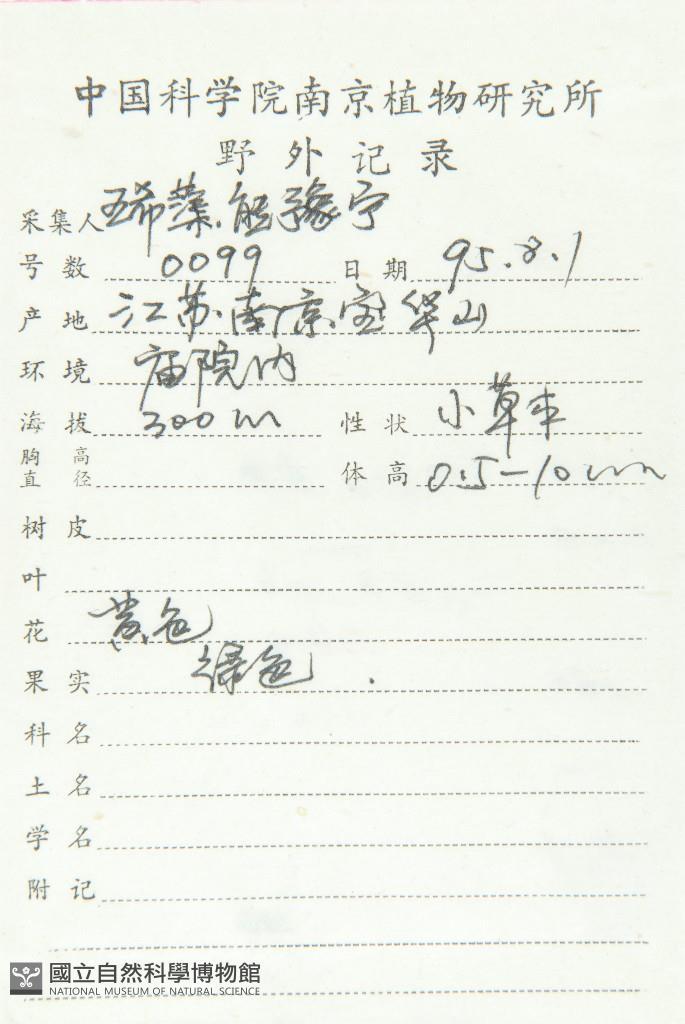 中国科学院南京植物研究所
野外记录
采集人 王希蕖.能豫宁
号数 0099 日期 95.8.1
产地 江苏南京宝华山
环境 庙院内
海拔 300m 性状 小草本
胸高直径 体高 0.5-10cm
树皮
叶
花 黄色
果实 绿色.
科名
土名
学名
附记
國立自然科學博物館
NATIONAL MUSEUM OF NATURAL SCIENCE